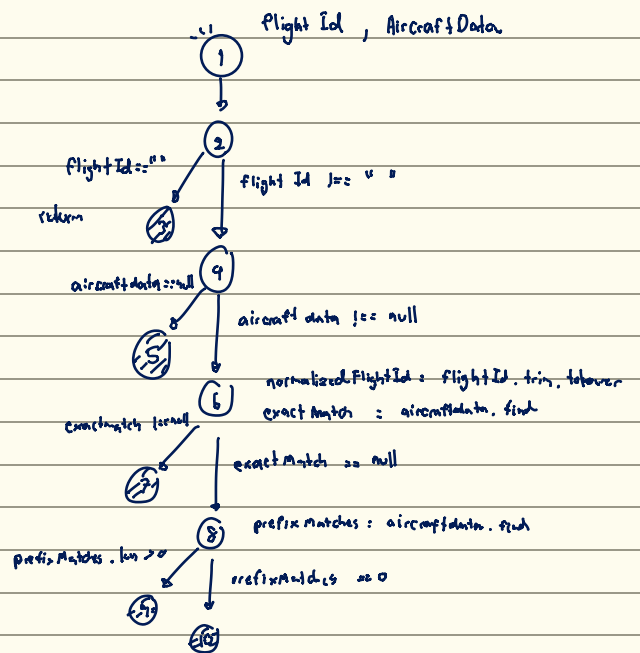 Flight Id , AircraftData
1
2
flightId==""
flight Id !== " "
return
3
4
aircraftdata==null
aircraft data !== null
5
6
normalizedFlightId : flightId.trim.tolower
exactMatch : aircraftdata.find
exactmatch !==null
exactMatch == null
7
8
prefixMatches : aircraftdata.find
prefixMatches.len >0
prefixMatches ==0
9
10